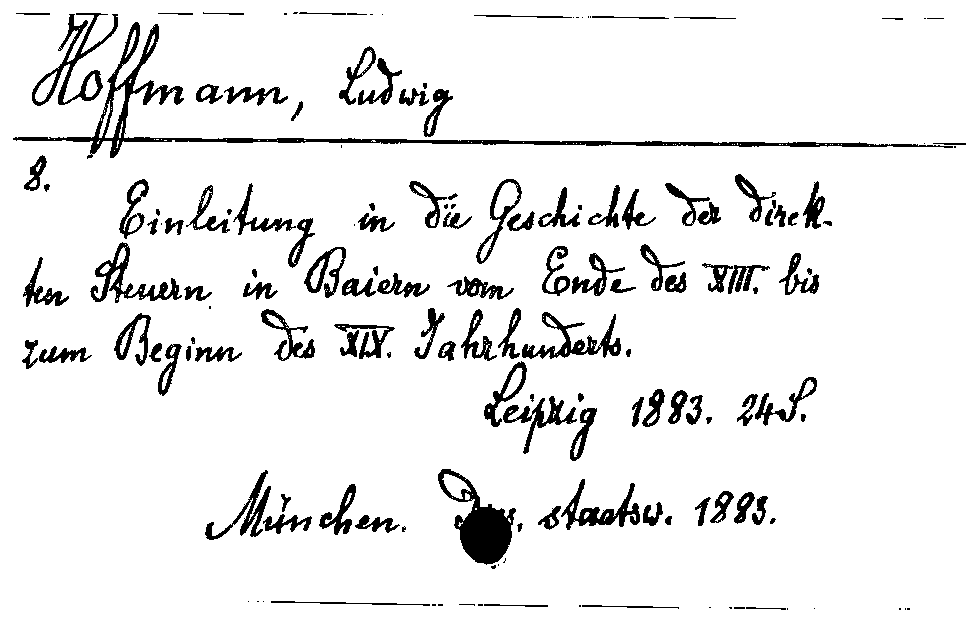 Hoffmann, Ludwig
8.
Einleitung in die Geschichte der direk-
ten Steuern in Baiern vom Ende des XIII. bis
zum Beginn des XIX. Jahrhunderts.
Leipzig 1883. 24 S.
München. staatsw. 1883.